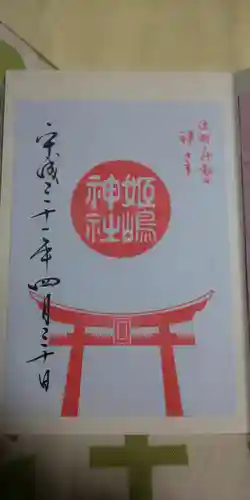 姫嶋
神社
平成三十一年四月三十日